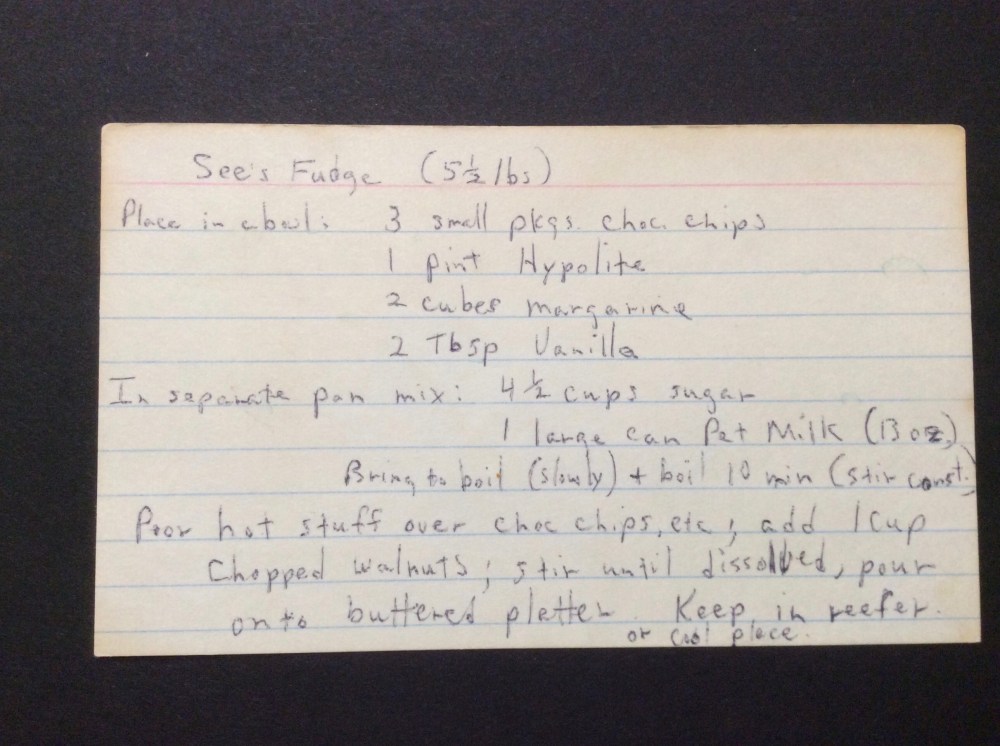 See's Fudge (5½ lbs)
Place in a bowl: 3 small pkgs. choc. chips
1 pint Hypolite
2 cubes margarine
2 Tbsp Vanilla
In separate pan mix: 4½ cups sugar
1 large can Pet Milk (13 oz.)
Bring to boil (slowly) + boil 10 min (stir const.)
Poor hot stuff over choc chips, etc; add 1 cup
Chopped walnuts; stir until dissolved, pour
onto buttered platter. Keep in reefer.
or cool place.